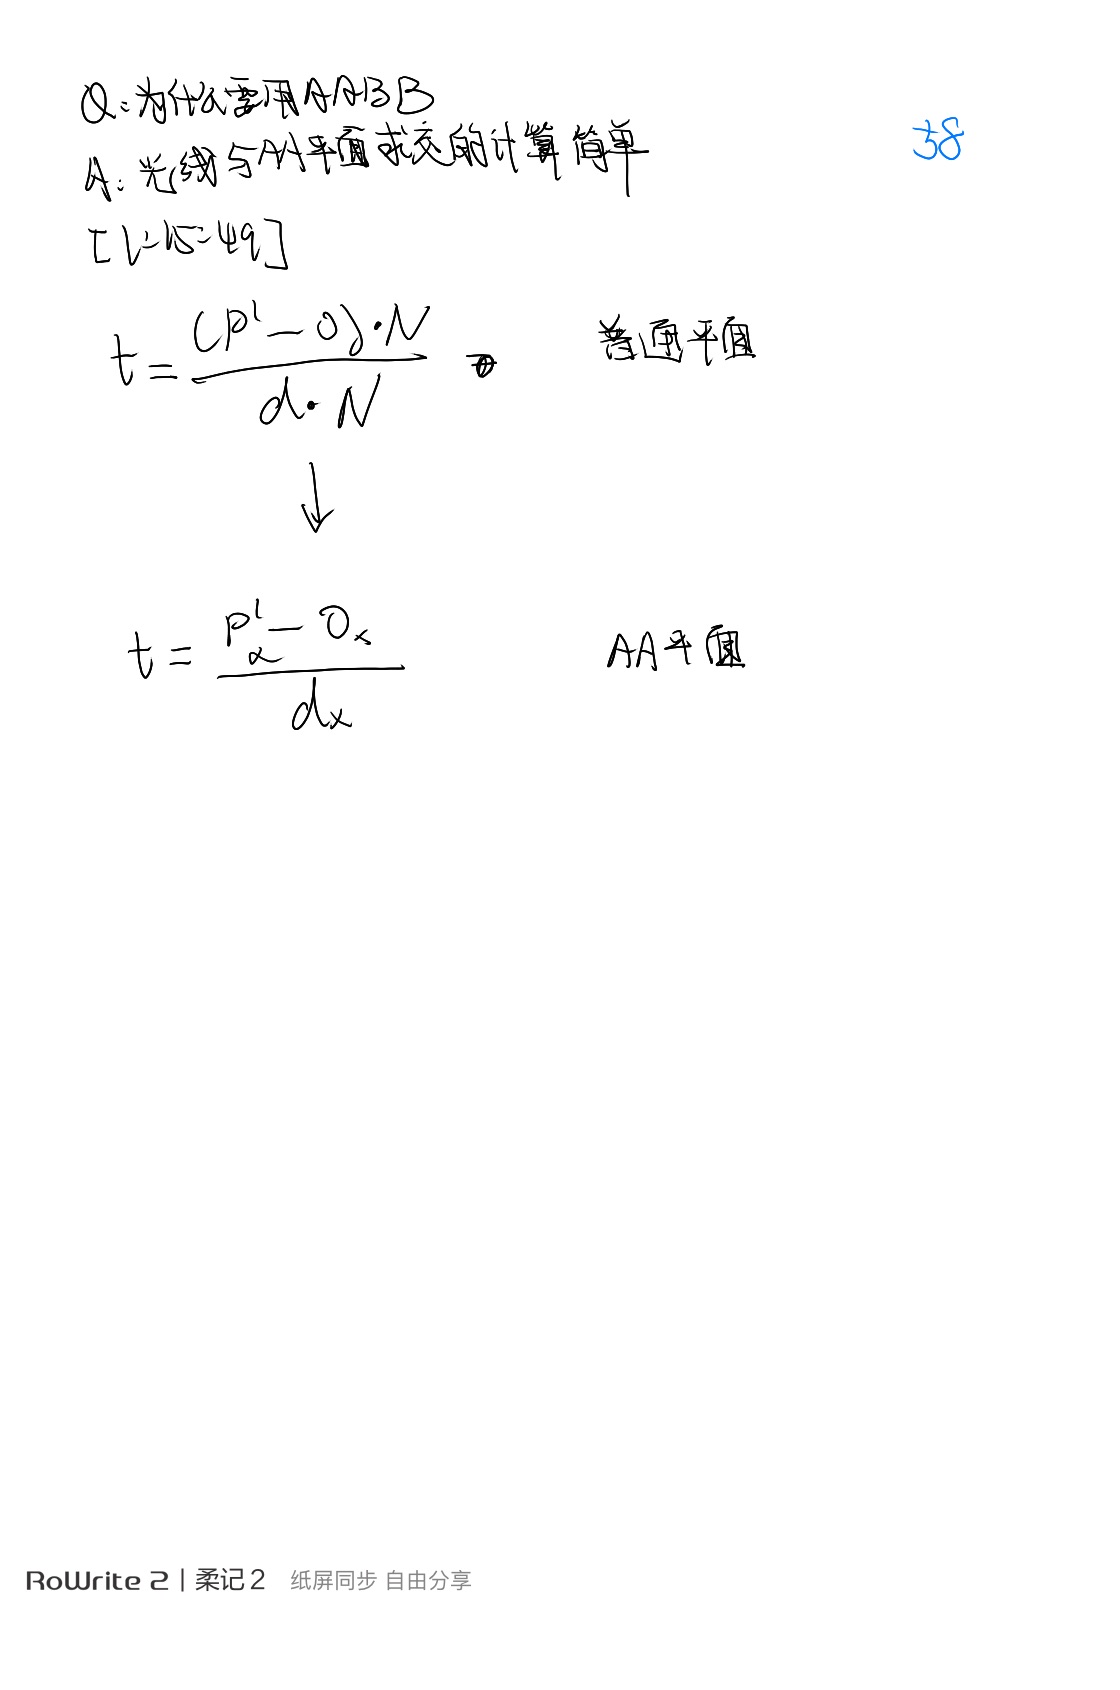 Q:为什么要用AABB
A:光线与AA平面求交的计算简单
38
[1:15:49]
t = (p' - O)·N / d·N 普通平面
↓
t = p'ₓ - Oₓ / dₓ AA平面
RoWrite 2 | 柔记 2 纸屏同步 自由分享